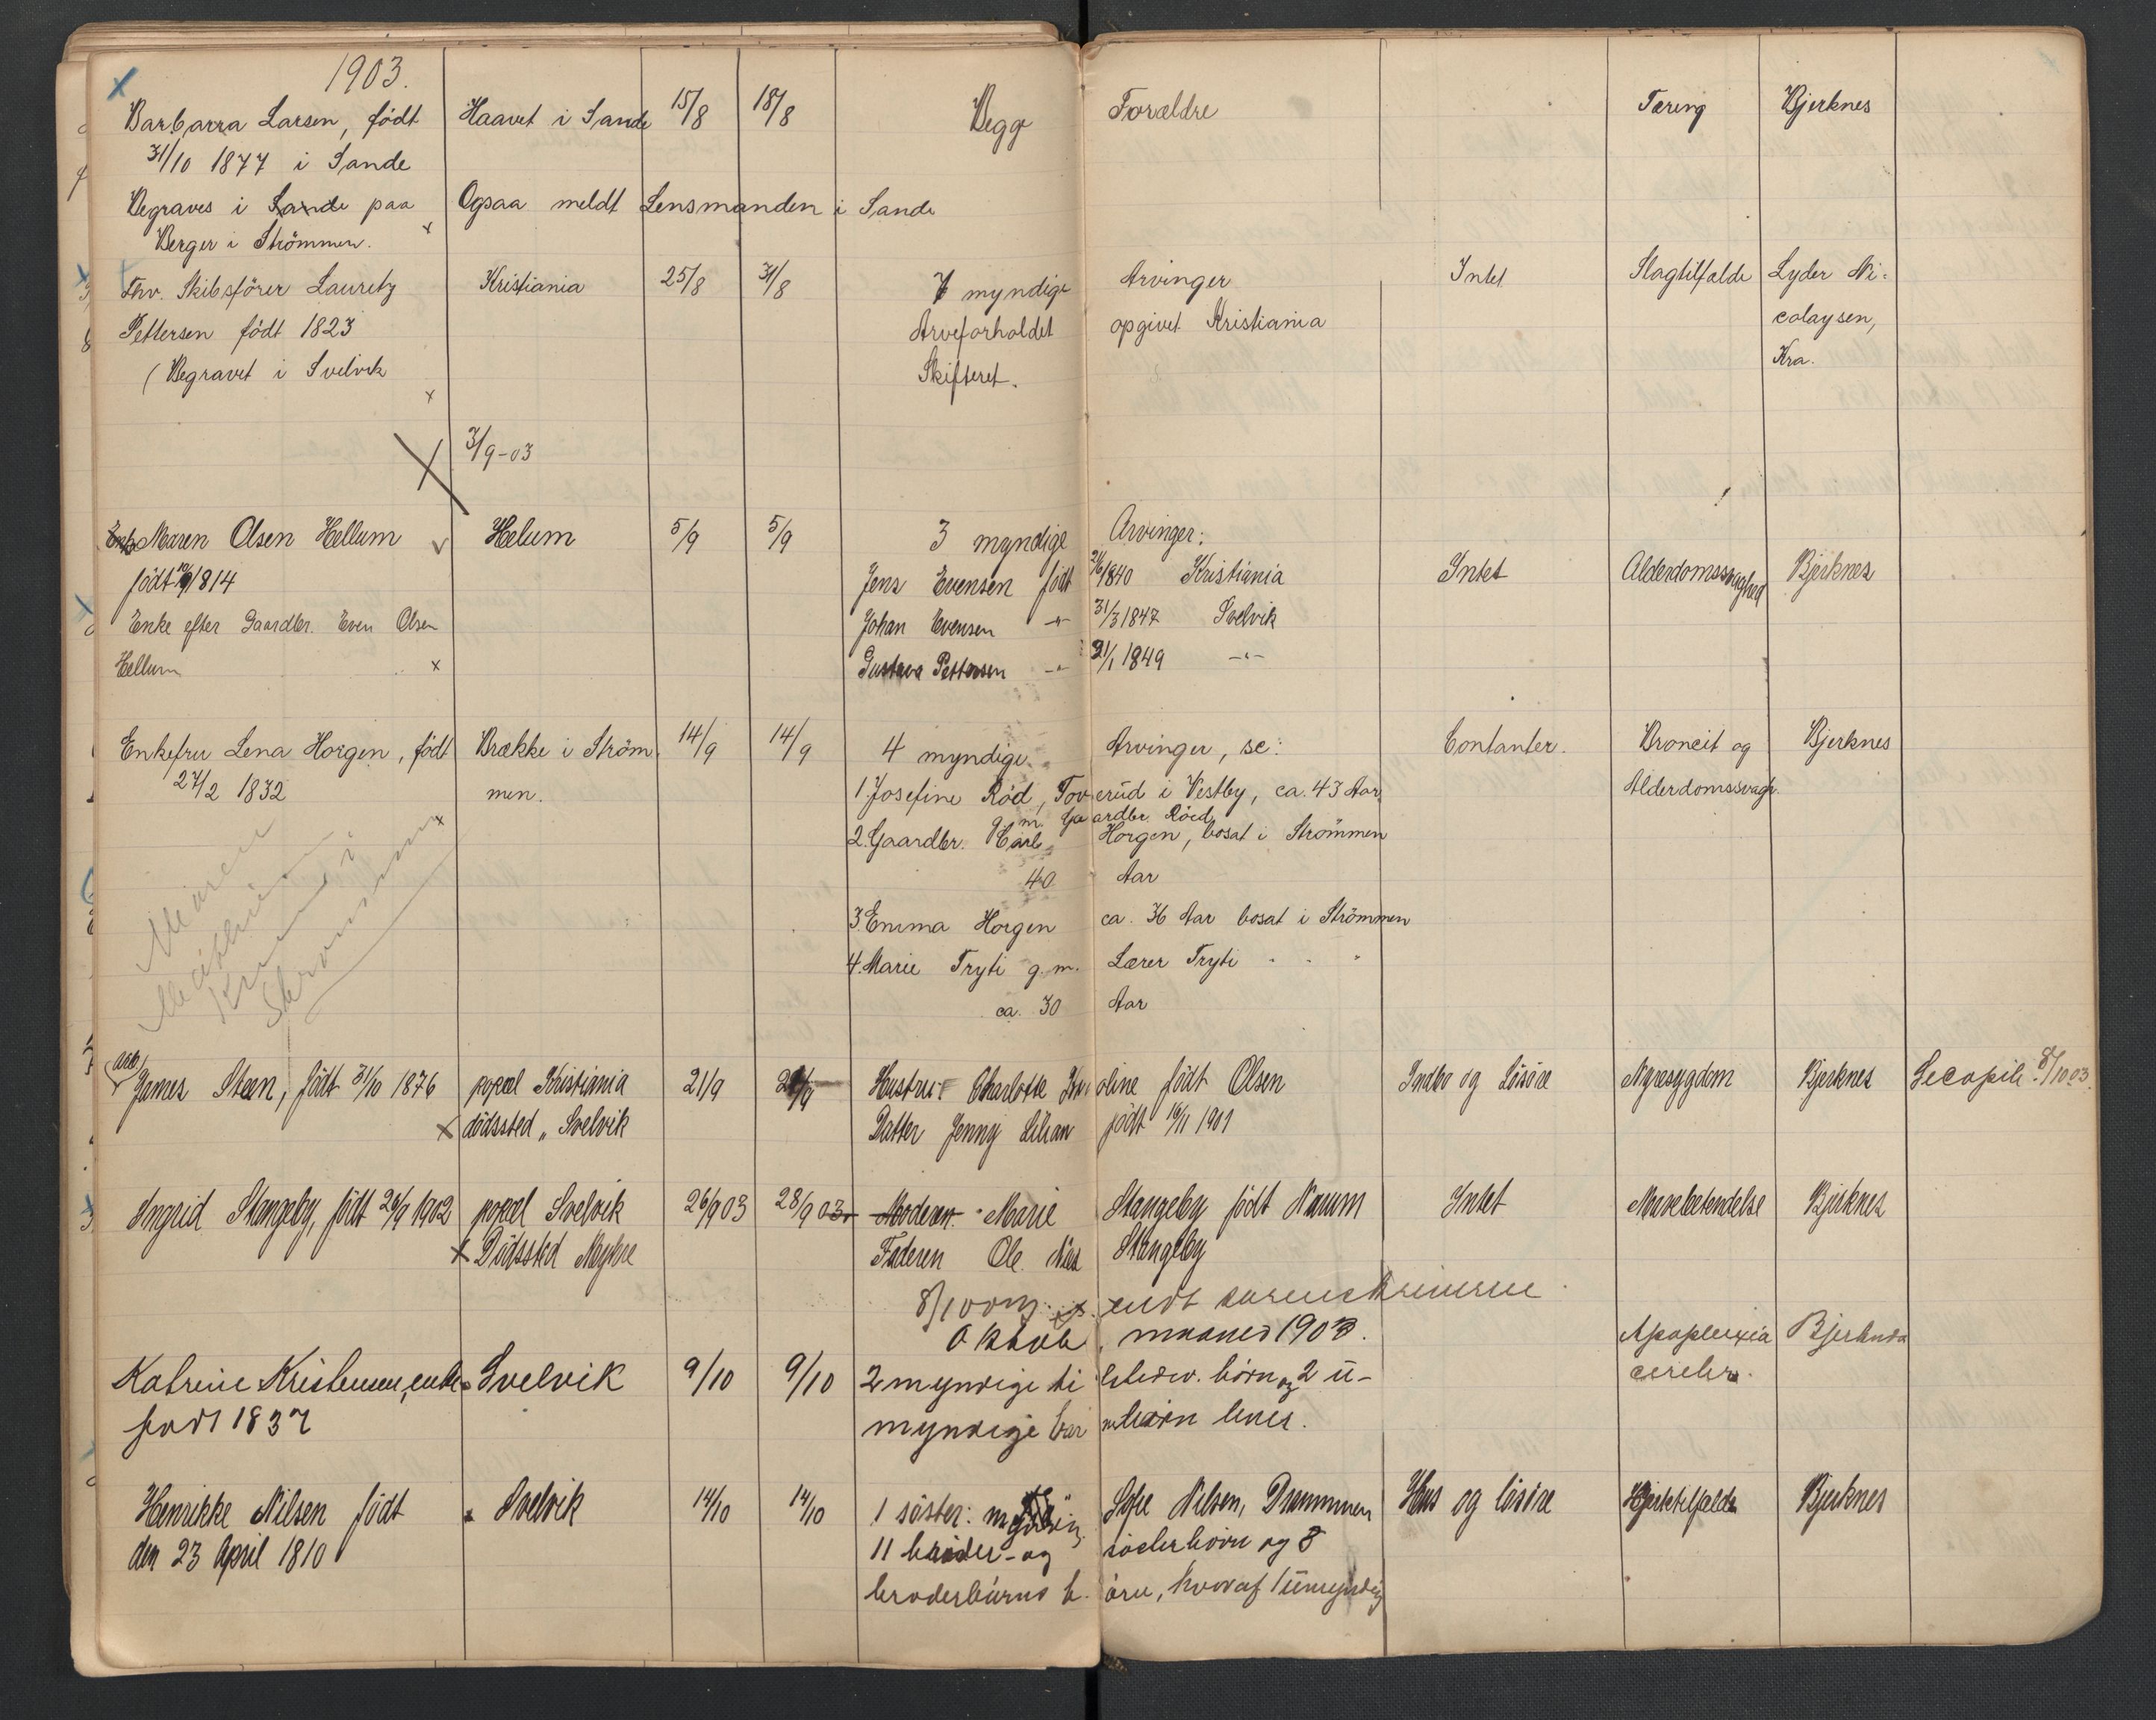 1903.
Barbarra Larsen, født Haavet i Sande 15/8 18/8 Begge Forældre Tæring Bjerknes
31/10 1877 i Sande
Begraves i Sande paa Ogsaa meldt Lensmanden i Sande
Berger i Strömmen.
Fhv. Skibsförer Lauritz Kristiania 25/8 31/8 7 myndige Arvinger Intet Slagtilfælde Lyder Ni-
Pettersen født 1823 Arveforholdet opgivet Kristiania colaysen,
(Begravet i Svelvik Skifteret. Kra.
3/9-03
Maren Olsen Hellum Helum 5/9 5/9 3 myndige Arvinger:
født 10/9 1814 Jens Evensen født 21/6 1840 Kristiania Intet Alderdomssvaghed Bjerknes
Enke efter Gaardbr. Even Olsen Johan Evensen -"- 31/3 1847 Svelvik
Hellum Gustava Pettersen -"- 21/1 1849 -"-
Enkefru Lena Horgen, født Brække i Ström 14/9 14/9 4 myndige Arvinger, sc: Contanter. Broncit og Bjerknes
27/2 1832 men. 1. Josefine Röd, Toverud i Vestby, ca. 43 Aar, Alderdomssvagh.
g. m. Gaardbr. Röed
2. Gaardbr. Carl Horgen, bosat i Strömmen
40 Aar
3. Emma Horgen ca. 36 Aar bosat i Strömmen
4. Marie Tryti g. m. Lærer Tryti " " "
ca. 30 Aar
Maren
i
Strömmen
Arb.
James Steen, født 31/10 1876 popæl Kristiania 21/9 21/9 Hustru Charlotte oline født Olsen Indbo og Lösöre Nyresygdom Bjerknes 8/10 03.
dödssted " Svelvik Datter Jenny Lilian født 16/11 1901
Ingrid Stangeby, født 26/9 1902 popæl Svelvik 26/9 03 28/9 03. Moderen Marie Stangeby født Naum Intet Bjerknes
Dödssted Nyhre Faderen Ole Stangeby
8/10 03
Oktob. maaned 1903. Apoplexia Bjerknes
Katrine Kristensen, enke Svelvik 9/10 9/10 2 myndige börn og 2 u- cerebr.
født 1837 myndige
Henrikke Nilsen født Svelvik 14/10 14/10 1 söster: Sofie Nilsen, Drammen Hus og lösöre Hjertetilfælde Bjerknes
den 23 April 1810 11 broder- og sösterbörn og 8
broderbarns b. örn, hvoraf 1 umyndig